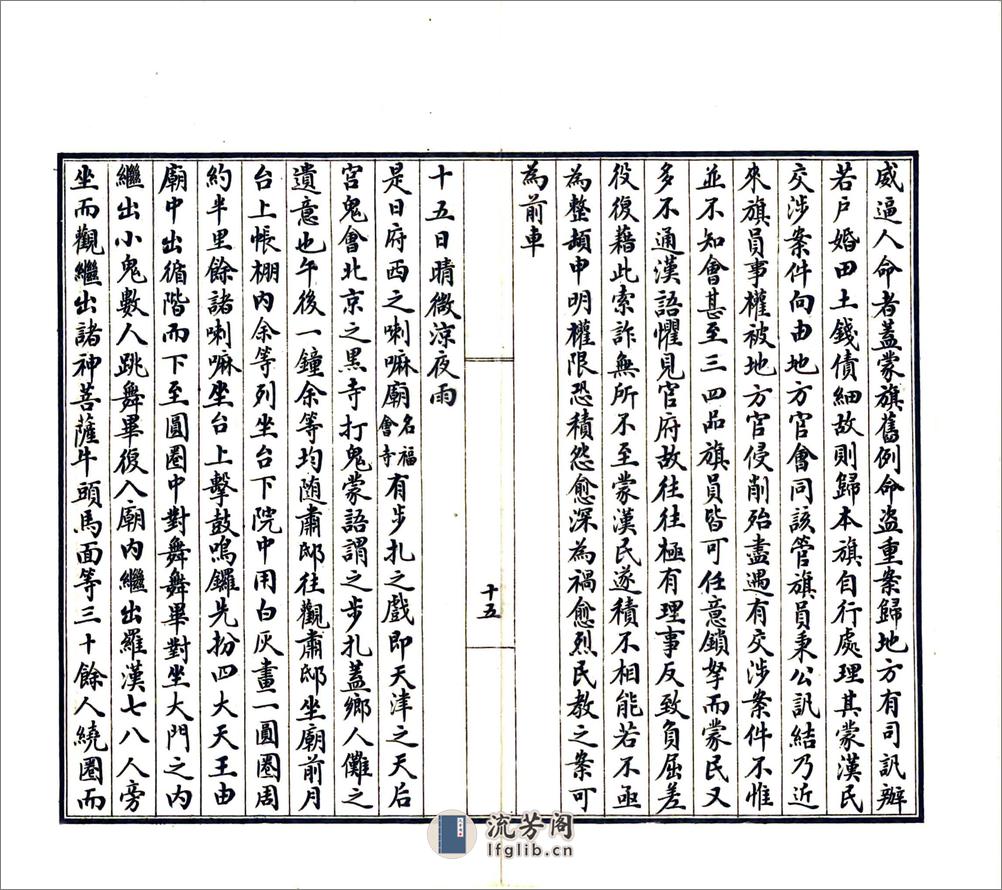 威逼人命者蓋蒙旗舊例命盜重案歸地方有司訊辦
若戶婚田土錢債細故則歸本旗自行處理其蒙漢民
交涉案件向由地方官會同該管旗員秉公訊結乃近
來旗員事權被地方官侵削殆盡遇有交涉案件不惟
並不知會甚至三四品旗員皆可任意鎖拏而蒙民又
多不通漢語懼見官府故往往極有理事反致負屈差
役復藉此索詐無所不至蒙漢民遂積不相能若不亟
為整頓申明權限恐積怨愈深為禍愈烈民教之案可
為前車
十五
十五日晴微涼夜雨
是日府西之喇嘛廟名福會寺有步扎之戲即天津之天后
宮鬼會北京之黑寺打鬼蒙語謂之步扎蓋鄉人儺之
遺意也午後一鐘余等均随肅邸往觀肅邸坐廟前月
台上帳棚內余等列坐台下院中用白灰畫一圓圈周
約半里餘諸喇嘛坐台上擊鼓鳴鑼先扮四大天王由
廟中出循階而下至圓圈中對舞舞畢對坐大門之內
繼出小鬼數人跳舞畢復入廟內繼出羅漢七八人旁
坐而觀繼出諸神菩薩牛頭馬面等三十餘人繞圈而
流芳阁
lfglib.cn